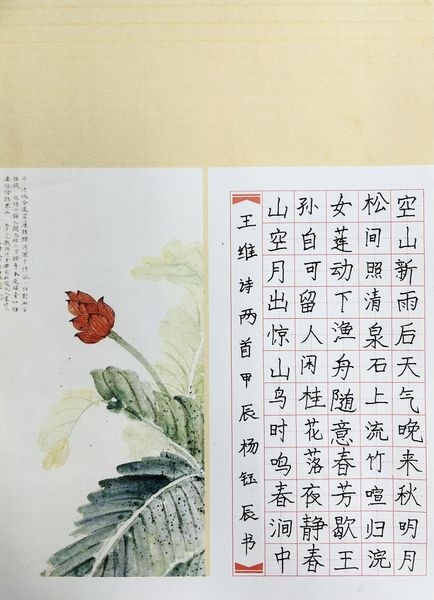 空山新雨后天气晚来秋明月
松间照清泉石上流竹喧归浣
女莲动下渔舟随意春芳歇王
孙自可留人闲桂花落夜静春
山空月出惊山鸟时鸣春涧中
王维诗两首甲辰杨钰辰书